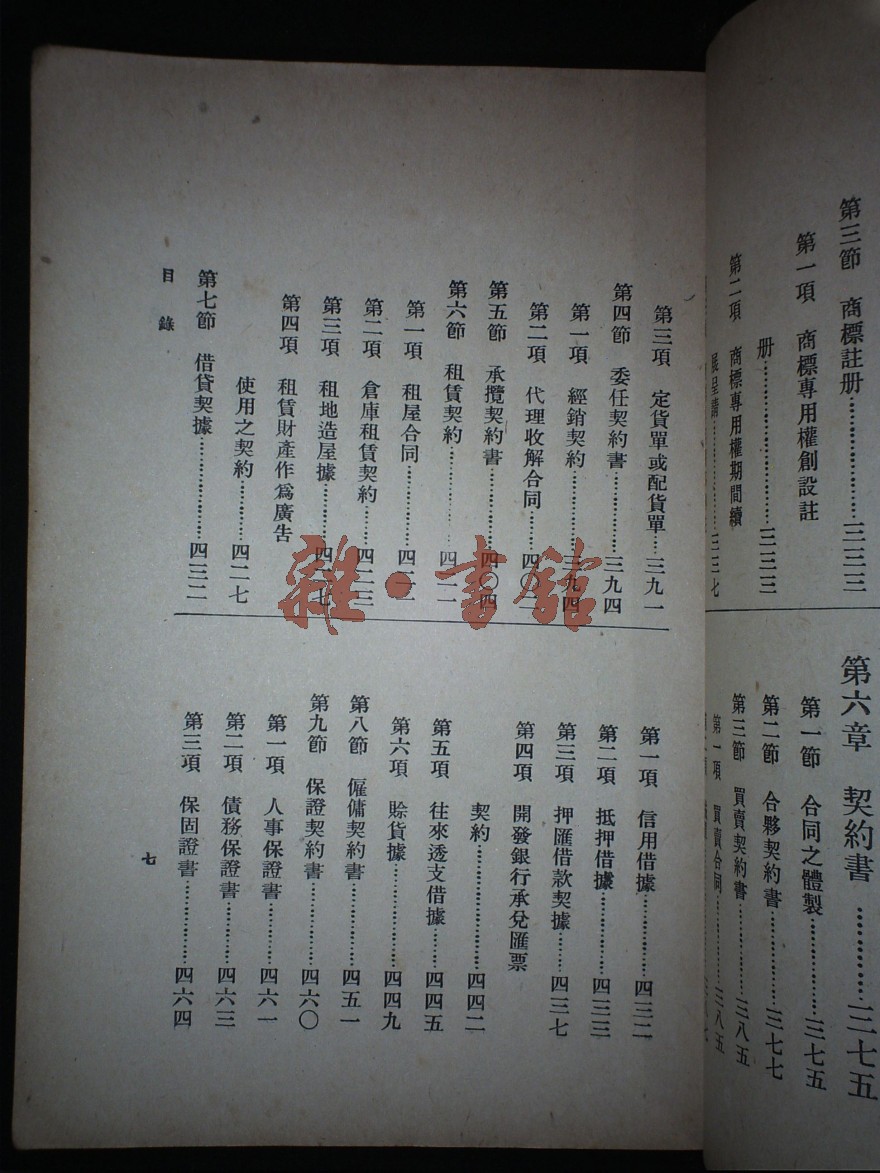 第三節　商標註册…………三三三
第一項　商標專用權創設註
册…………三三三
第二項　商標專用權期間續
展呈請…………三三七
第六章　契約書…………三七五
第一節　合同之體製…………三七五
第二節　合夥契約書…………三七七
第三節　買賣契約書…………三八五
第一項　買賣合同…………三八五
第三項　定貨單或配貨單…三九一
第四節　委任契約書…………三九四
第一項　經銷契約…………三九四
第二項　代理收解合同………四〇二
第五節　承攬契約書…………四〇四
第六節　租賃契約…………四一一
第一項　租屋合同…………四一一
第二項　倉庫租賃契約………四一三
第三項　租地造屋據…………四一七
第四項　租賃財產作爲廣告
使用之契約…………四二七
第七節　借貸契據…………四三二
第一項　信用借據…………四三二
第二項　抵押借據…………四三三
第三項　押匯借款契據………四三七
第四項　開發銀行承兌匯票
契約…………四四二
第五項　往來透支借據………四四五
第六項　賒貨據…………四四九
第八節　僱傭契約書…………四五一
第九節　保證契約書…………四六〇
第一項　人事保證書…………四六一
第二項　債務保證書…………四六三
第三項　保固證書…………四六四
目錄
七
雜·書館